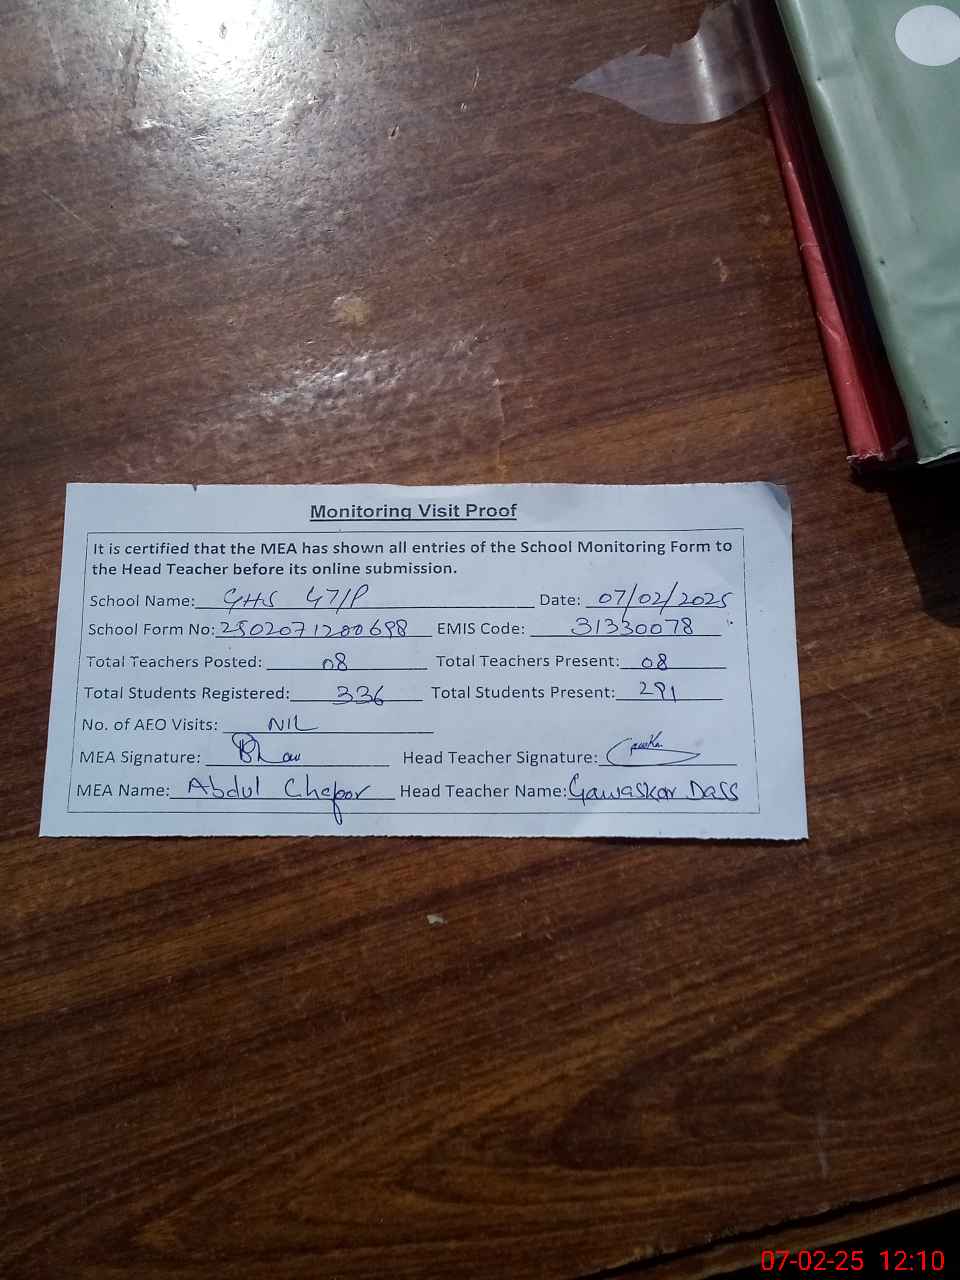 Monitoring Visit Proof
It is certified that the MEA has shown all entries of the School Monitoring Form to
the Head Teacher before its online submission.
School Name: GHS 47/P Date: 07/02/2025
School Form No: 2502071200698 EMIS Code: 31330078
Total Teachers Posted: 08 Total Teachers Present: 08
Total Students Registered: 336 Total Students Present: 291
No. of AEO Visits: NIL
MEA Signature: Head Teacher Signature:
MEA Name: Abdul Ghafoor Head Teacher Name: Gawaskar Dass
07-02-25 12:10